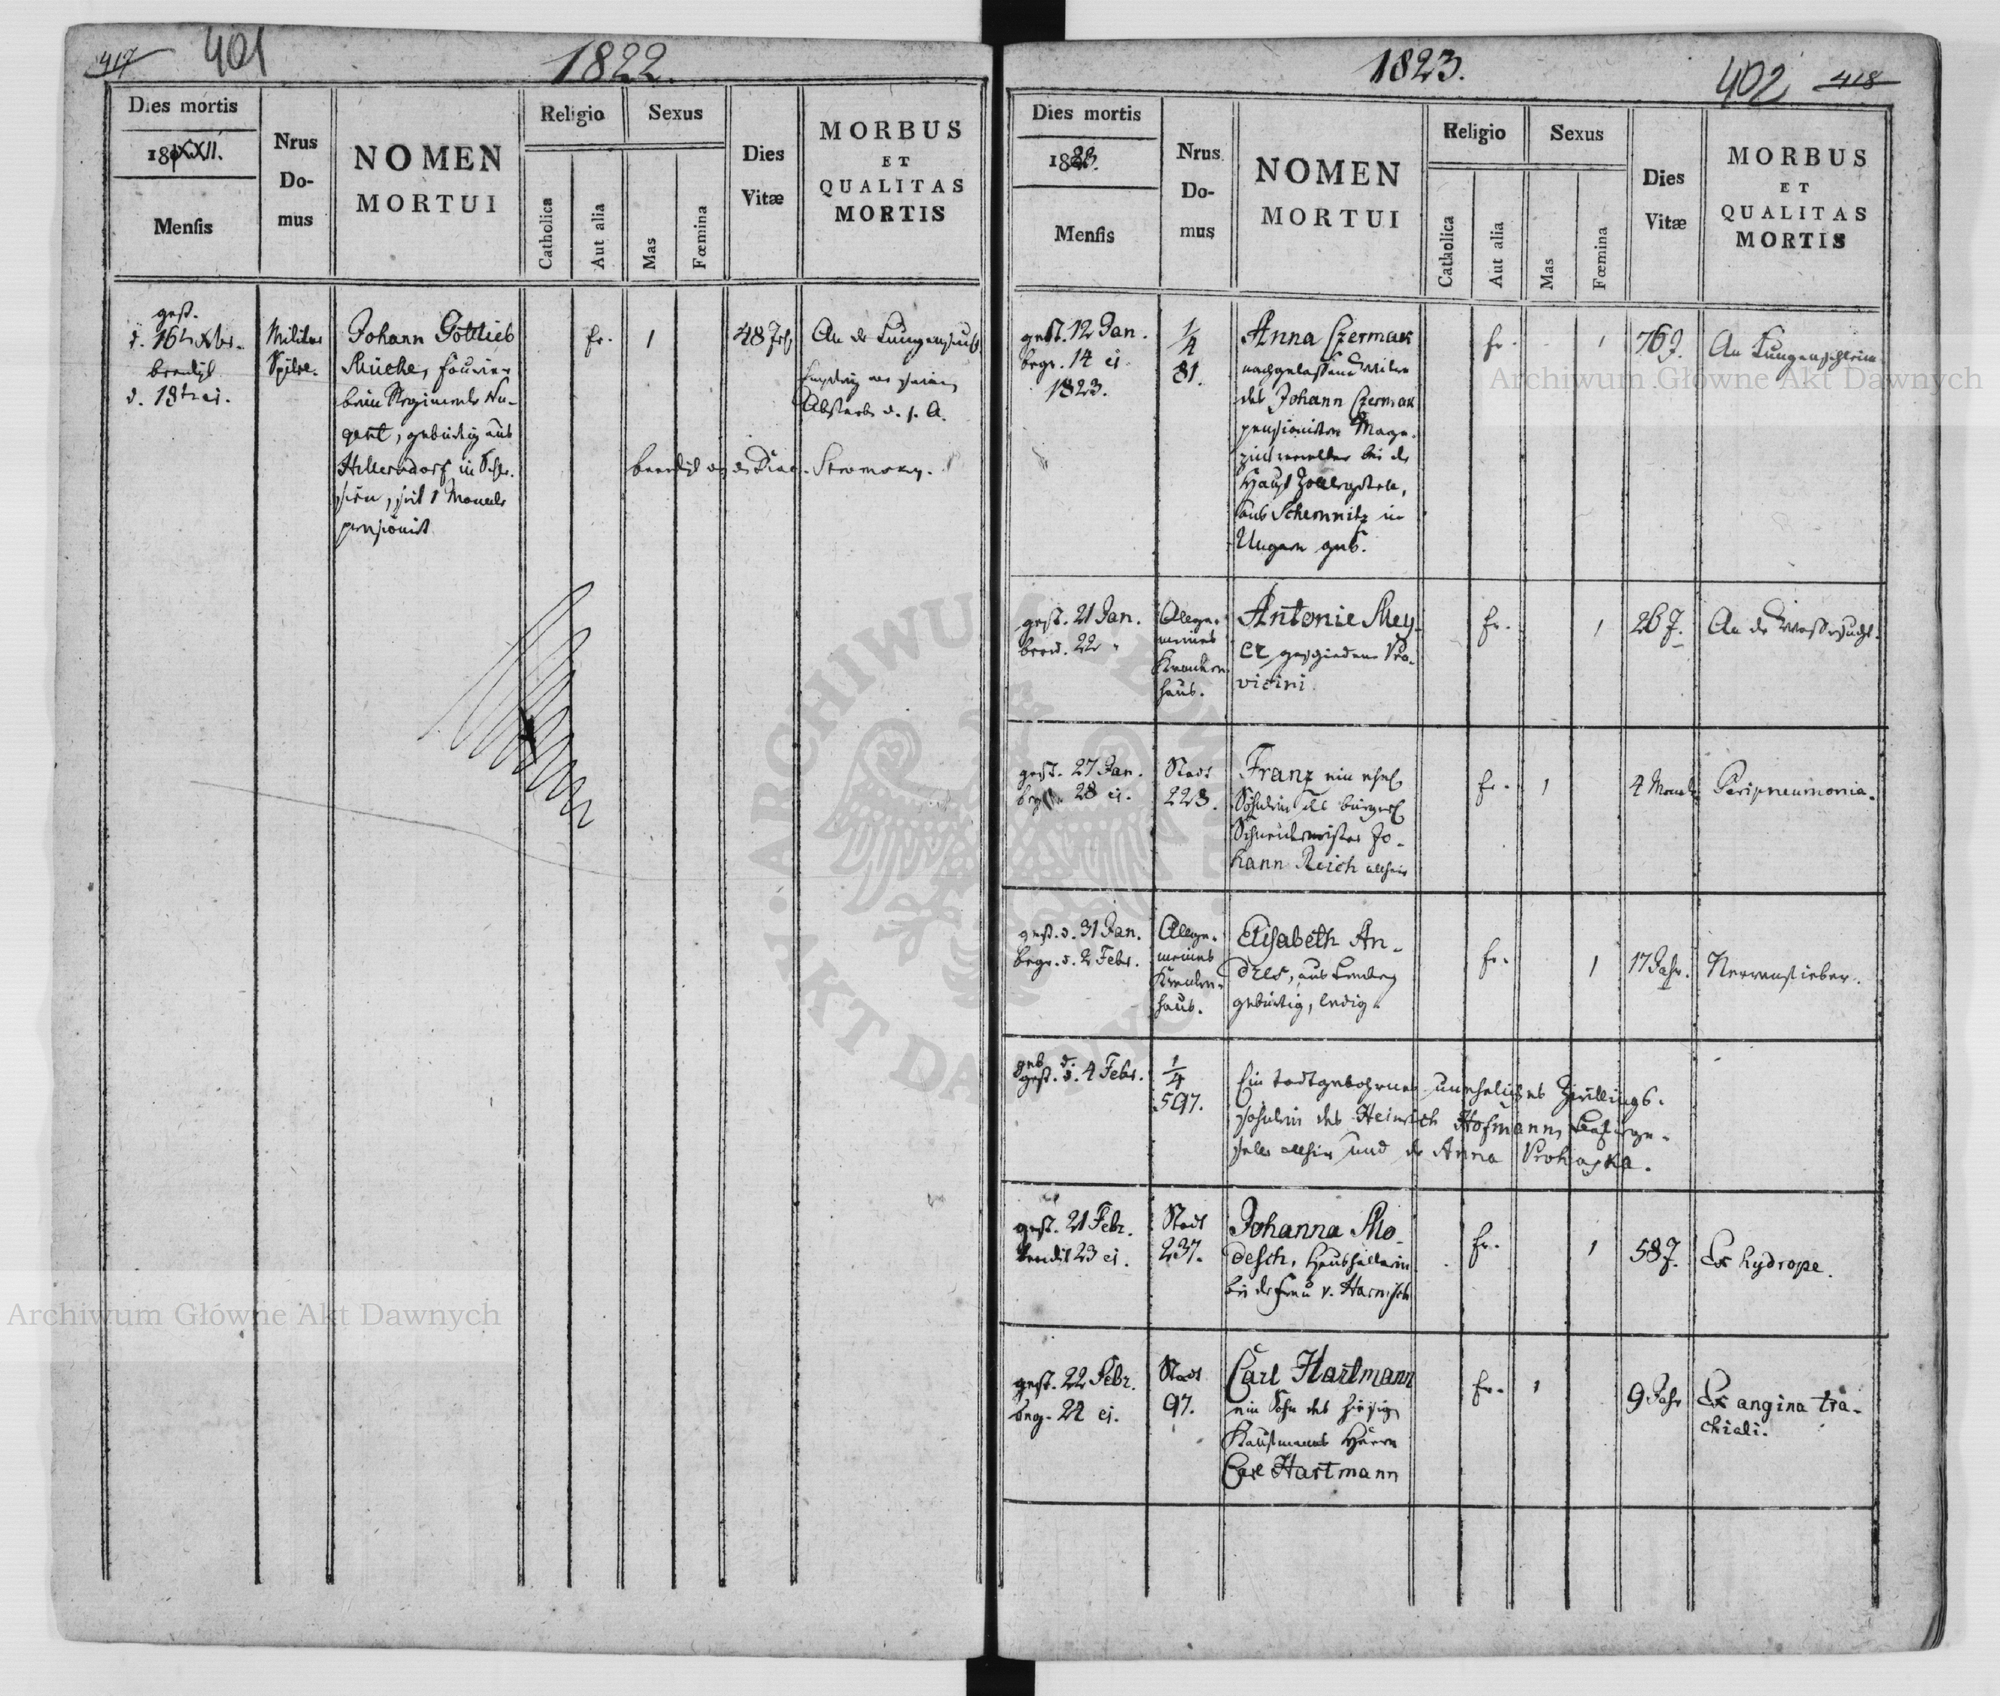 417 401
1822.
Dies mortis
18XXII.
Mensis
Nrus
Do-
mus
NOMEN
MORTUI
Religio
Catholica
Aut alia
Sexus
Mas
Fœmina
Dies
Vitæ
MORBUS
ET
QUALITAS
MORTIS
gest.
d. 16t Xbr.
beerdigt
d. 18t ej.
Militär
Spital.
Johann Gottlieb
Fourier
beim Regiment Nu-
gent, gebürtig aus
Hillersdorf in Schle-
sien, seit 1 Monate
pensionirt
Ev.
1
48 Jahr
An der Lungensucht
beerdigt
1823.
402 418
Dies mortis
1823.
Mensis
Nrus
Do-
mus
NOMEN
MORTUI
Religio
Catholica
Aut alia
Sexus
Mas
Fœmina
Dies
Vitæ
MORBUS
ET
QUALITAS
MORTIS
gest. 12 Jan.
begr. 14 ej.
1823.
1/4
81.
Anna Czermak
nachgelassene Witwe
des Johann Czermak
pensionirten Maga-
zinverwalter bei der
Haupt Zoll
aus Schemnitz in
Ungarn geb.
Ev.
1
76 J.
An Lungenschleim
gest. 21 Jan.
beerd. 22 "
Allge-
meines
Kranken
haus.
Antonie Mey-
er geschiedene Pro-
vicini
Ev.
1
26 J.
An der Wassersucht.
gest. 27 Jan.
28 ej.
Stadt
223.
Franz ein ehel
Söhnlein des bürgerl
Schneidermeister Jo-
hann Reich allhier
Ev.
1
4 Monat
Peripneumonia.
gest. d. 31 Jan.
begr. d. 2 Febr.
Allge-
meines
Kranken-
haus.
Elisabeth An-
dres, aus Lemberg
gebürtig, ledig.
Ev.
1
17 Jahr.
Nervenfieber.
geb. d.
gest. d. 4 Febr.
1/4
597.
Ein todtgebohrnes uneheliches Zwillings-
söhnlein des Heinrich Hofmann,
allhier und der Anna Prohaska.
gest. 21 Febr.
beerdigt 23 ej.
Stadt
237.
Johanna Mo-
desch, Haushälterin
bei der Frau v. Harnisch
Ev.
1
58 J.
Ex hydrope.
gest. 22 Febr.
beg. 24 ej.
Stadt
97.
Carl Hartmann
ein Sohn des hiesigen
Kaufmanns Herrn
Carl Hartmann
Ev.
1
9 Jahr
Ex angina tra-
chiali.
Archiwum Główne Akt Dawnych
Archiwum Główne Akt Dawnych
ARCHIWUM GŁÓWNE
AKT DAWNYCH